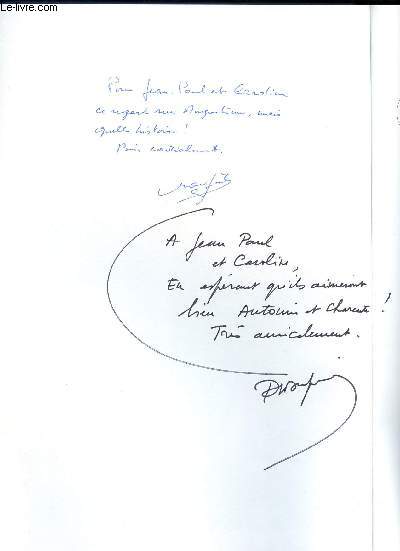 © Le-livre.com
Pour Jean-Paul et Caroline
ce regard sur Augustin, mais
quelle histoire !
Très cordialement.
A Jean Paul
et Caroline,
En espérant qu'ils aimeront
bien Antonin et Charente !
Très amicalement.